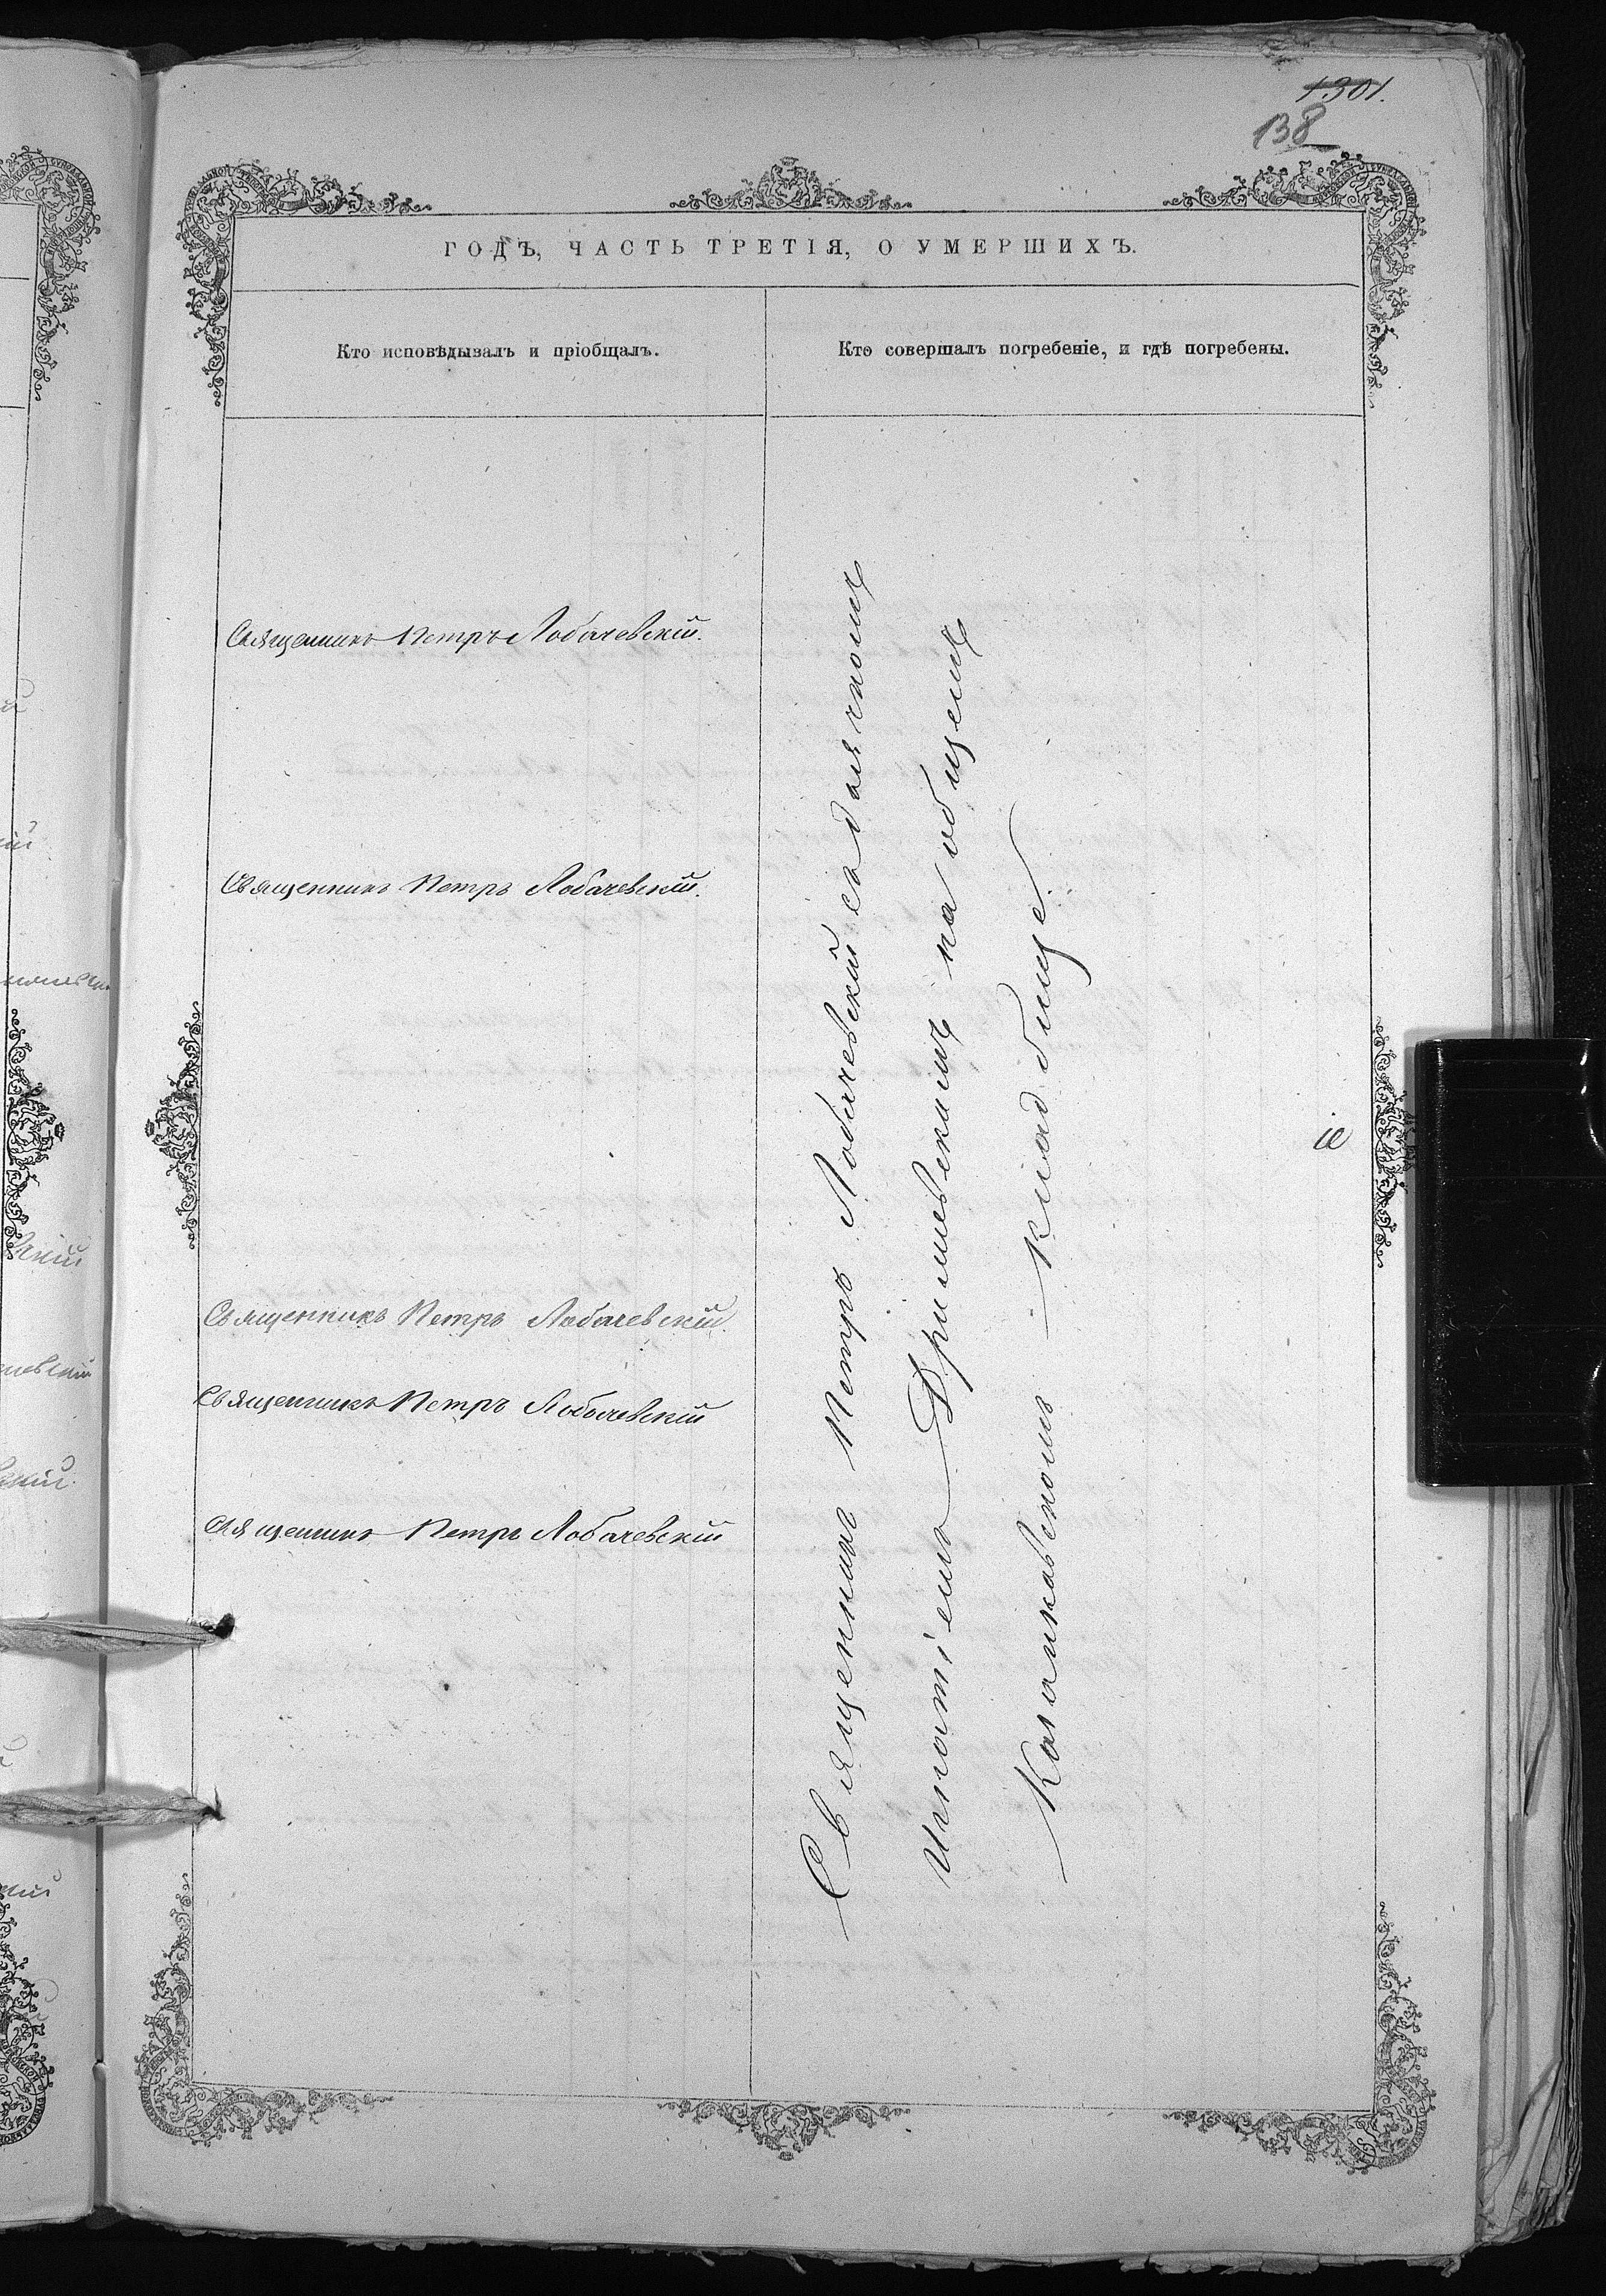 1301.
138
ГОДЪ, ЧАСТЬ ТРЕТІЯ, О УМЕРШИХЪ.
Кто исповѣдывалъ и пріобщалъ.
Кто совершалъ погребеніе, и гдѣ погребены.
Священникъ Петръ Лобачевскій.
Священникъ Петръ Лобачевскій.
Священникъ Петръ Лобачевскій.
Священникъ Петръ Лобачевскій
Священникъ Петръ Лобачевскій
Священникъ Петръ Лобачевскій съ дьячкомъ
Игнатіемъ на общемъ
кладбищѣ